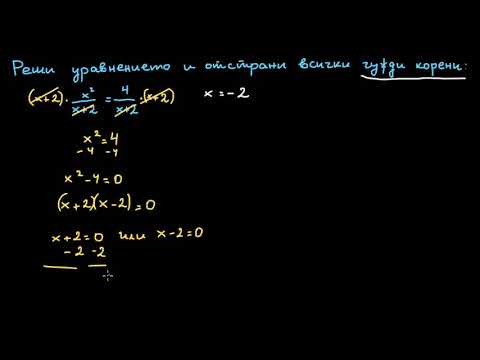 Реши уравнението и отстрани всички чужди корени:
(x+2) · x²/x+2 = 4/x+2 · (x+2) x = -2
x² = 4
-4 -4
x² - 4 = 0
(x+2)(x-2) = 0
x+2=0 или x-2=0
-2 -2